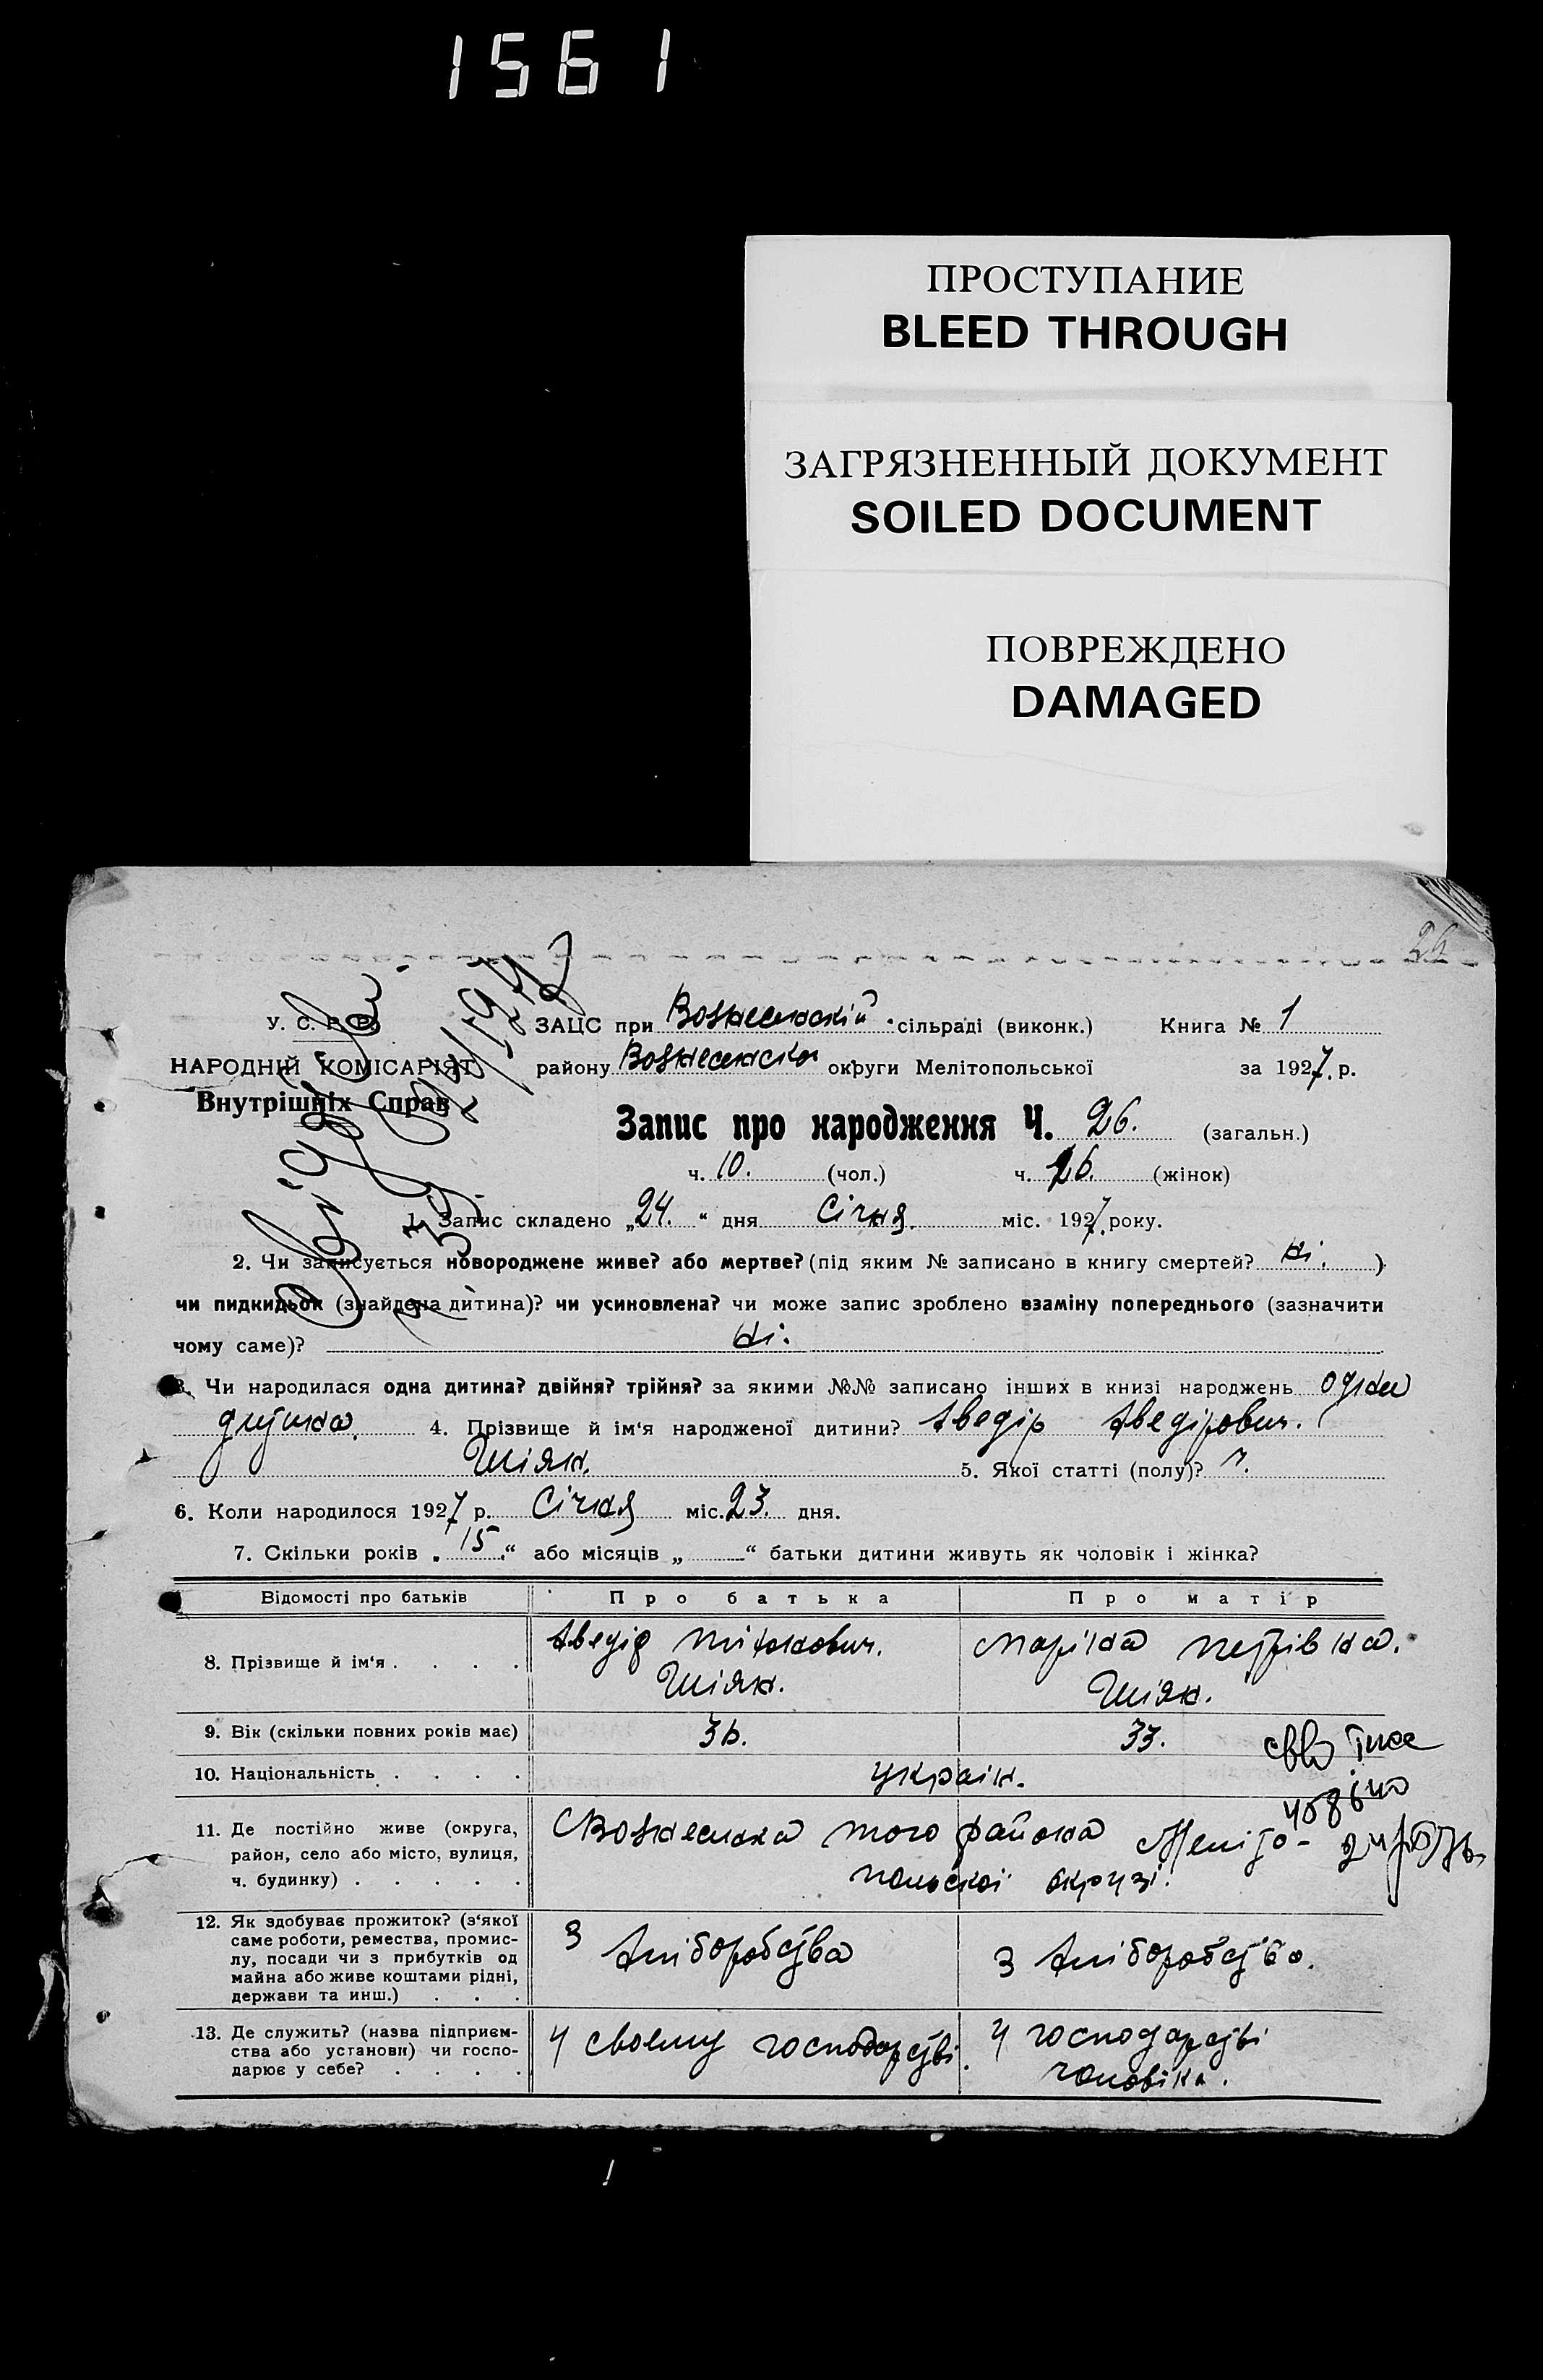 1561
ПРОСТУПАНИЕ
BLEED THROUGH
ЗАГРЯЗНЕННЫЙ ДОКУМЕНТ
SOILED DOCUMENT
ПОВРЕЖДЕНО
DAMAGED
26
У. С. Р. Р. ЗАЦС при Вознесенскій сільраді (виконк.) Книга № 1
НАРОДНІЙ КОМІСАРІЯТ району Вознесенска округи Мелітопольської за 1927. р.
Внутрішніх Справ
Запис про народження Ч. 26. (загальн.)
ч. 10. (чол.) ч. 16. (жінок)
1. Запис складено „24.“ дня Січня. міс. 1927. року.
2. Чи записується новороджене живе? або мертве? (під яким № записано в книгу смертей? ні. )
чи пидкидьок (знайдена дитина)? чи усиновлена? чи може запис зроблено взаміну попереднього (зазначити
чому саме)? ні.
3. Чи народилася одна дитина? двійня? трійня? за якими №№ записано інших в книзі народжень одна
4. Прізвище й ім'я народженої дитини? Хведір Хведірович.
Шіян. 5. Якої статті (полу)? ч.
6. Коли народилося 1927 р. Січня міс. 23. дня.
7. Скільки років „15.“ або місяців „ “ батьки дитини живуть як чоловік і жінка?
Відомості про батьків Про батька Про матір
8. Прізвище й ім'я . . . . Хведір Тіхонович. Марина Петрівна.
Шіян. Шіян.
9. Вік (скільки повних років має) 36. 33.
10. Національність . . . . україн.
11. Де постійно живе (округа, район, село або місто, вулиця, ч. будинку) . . . . . СВознесенка того району Меліто-
польскої окрузі.
12. Як здобуває прожиток? (з'якої саме роботи, ремества, промислу, посади чи з прибутків од майна або живе коштами рідні, держави та инш.) . . . З Хліборобства З Хліборобства.
13. Де служить? (назва підприємства або установи) чи господарює у себе? . . . . У своему господарстві. У господарстві
чоловіка.